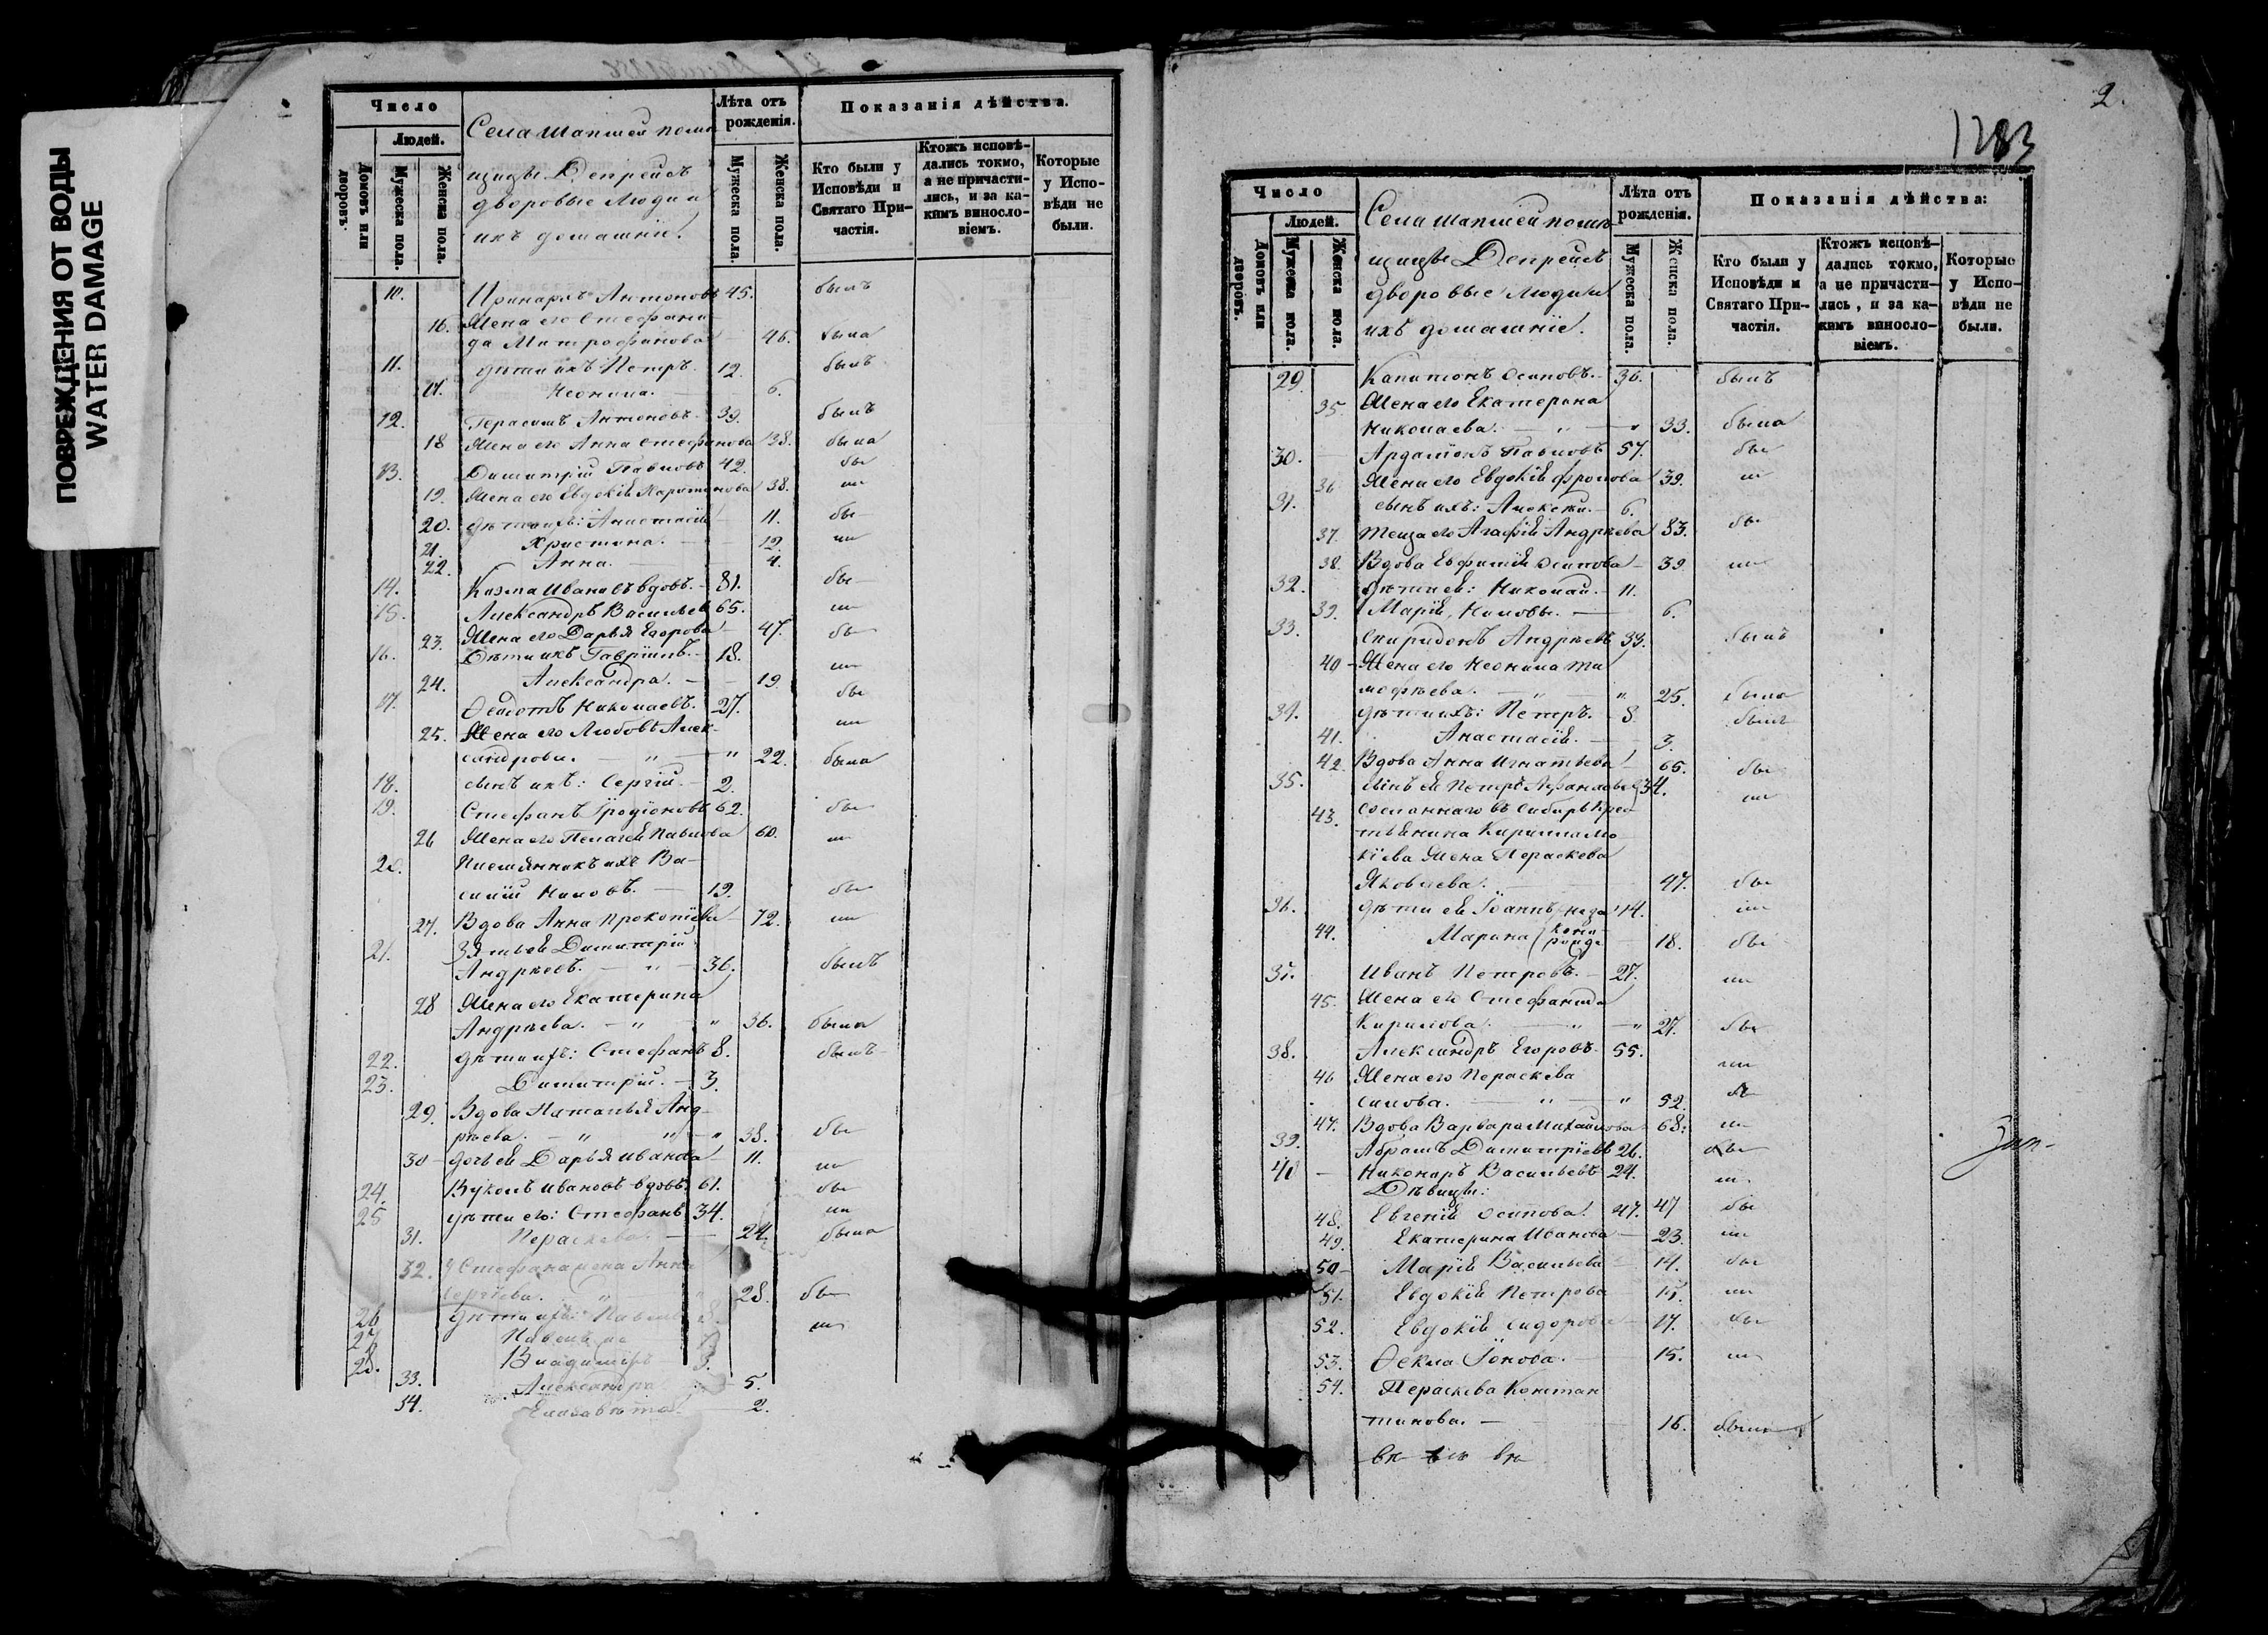 ПОВРЕЖДЕНИЯ ОТ ВОДЫ
WATER DAMAGE
Число
Людей.
Домовъ или дворовъ.
Мужеска пола.
Женска пола.
Села Шапшей помѣ
щицы Депрейсъ
дворовые люди и
ихъ домашніе.
Лѣта отъ рожденія.
Мужеска пола.
Женска пола.
Показанія дѣйства.
Кто были у Исповѣди и Святаго Причастія.
Ктожъ исповѣдались токмо, а не причастились, и за какимъ винословіемъ.
Которые у Исповѣди не были.
10. Иринархъ Антоновъ 45. былъ
16. Жена его Стефани
да Митрофанова 46. была
11. дѣти ихъ Петръ. 12. былъ
17. Неонила. 6.
12. Герасимъ Антоновъ 39. былъ
18 Жена его Анна Стефанова 38. была
13. Димитрій Павловъ 42. бы
19. Жена его Евдокія Харитонова 38. ли
20. дѣти ихъ: Анастасія 11. бы
21. Христина. 12. ли
22. Анна. 4.
14. Козма Ивановъ вдовъ. 81. бы
15. Александръ Васильев 65. ли
23. Жена его Дарья Егорова 47. бы
16. Дѣти ихъ Гавріилъ. 18. ли
24. Александра. 19. бы
17. Ѳедотъ Николаевъ. 27. ли
25. Жена его Любовь Алек-
сандрова. " " 22. была
18. сынъ ихъ: Сергій. 2.
19. Стефанъ Иродіоновъ 62. бы
26 Жена его Пелагея Павлова 60. ли
20. Племянникъ ихъ Ва-
силій Ниловъ. 19. бы
27. Вдова Анна Прокопіева 72. ли
21. Зять ея Димитрій
Андреевъ. " 36. былъ
28 Жена его Екатерина
Андрѣева. " " 36. была
22. дѣти ихъ: Стефанъ 8. былъ
23. Димитрій. 3.
29. Вдова Наталья Анд-
рѣева. " " " 38. бы
30 дочь ея Дарья Иванова 11. ли
24. Вуколъ Ивановъ вдовъ. 61. бы
25 дѣти его: Стефанъ 34. ли
31. Пераскева. 24. была
32. Стефана жена Анна
Сергіева. " 28. бы
26 дѣти ихъ: Павелъ 8. ли
27.
28. Владиміръ 3.
33. Александра 5.
34. Елисавета. 2.
2.
1283
Число
Людей.
Домовъ или дворовъ.
Мужеска пола.
Женска пола.
Села Шапшей помѣ
щицы Депрейсъ
дворовые люди и
ихъ домашніе.
Лѣта отъ рожденія.
Мужеска пола.
Женска пола.
Показанія дѣйства:
Кто были у Исповѣди и Святаго Причастія.
Ктожъ исповѣдались токмо, а не причастились, и за какимъ винословіемъ.
Которые у Исповѣди не были.
29. Капитонъ Осиповъ. 36. былъ
35. Жена его Екатерина
Николаева. " " 33. была
30. Ардаліонъ Павловъ 57. бы
36 Жена его Евдокія Фролова 39. ли
31. сынъ ихъ: Алексѣй. 6.
37. Теща его Агафія Андрѣева 83. бы
38. Вдова Евфимія Осипова 39 ли
32. Дѣти ея: Николай. 11.
39. Марія, Ниловы. 6.
33. Спиридонъ Андрѣевъ 33. былъ
40 Жена его Неонила Ти
мофѣева. " " 25. была
34. дѣти ихъ: Петръ. 8. былъ
41. Анастасія. 3.
42. Вдова Анна Игнатьева 65. бы
35. сынъ ея Петръ Афанасьев 34. ли
43. сосланнаго въ Сибирь крес
тьянина Кирилла Мо
кіева жена Пераскева
Яковлева. 47. бы
36. дѣти ея Іоаннъ 14. ли
44. Марина 18. бы
37. Иванъ Петровъ. 27. ли
45. Жена его Стефанида
Кирилова. " " 27. бы
38. Александръ Егоровъ. 55. ли
46 Жена его Пераскева
Силова. " " 52. бы
47. Вдова Варвара Михайлова 68. ли
39. Абрамъ Димитріевъ 26. бы
40 Никонаръ Васильевъ 24. ли
Дѣвицы:
48. Евгенія Осипова. 47. 47 бы
49. Екатерина Иванова 23. ли
50 Марія Васильева 14. бы
51. Евдокія Петрова 15. ли
52. Евдокія Сидорова 17. бы
53. Ѳекла Іонова. 15. ли
54. Пераскева Констан
тинова. 16. была